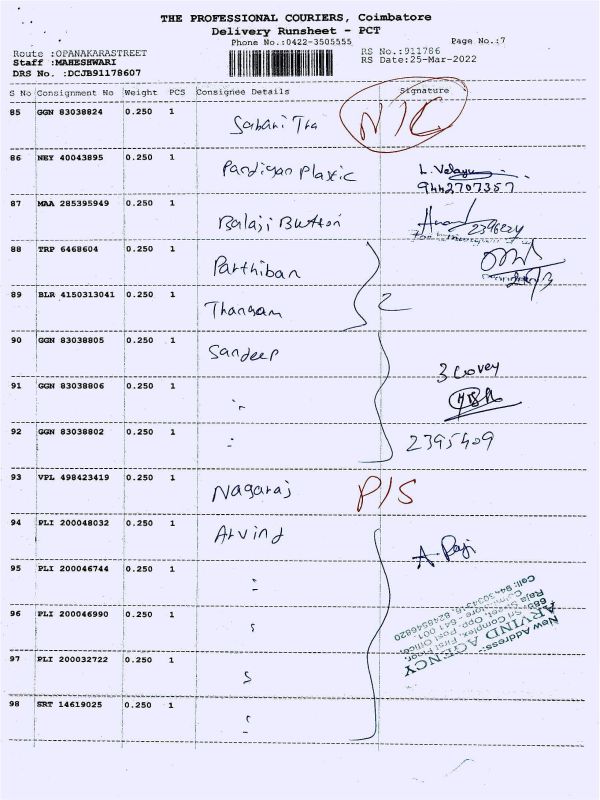 THE PROFESSIONAL COURIERS, Coimbatore
Delivery Runsheet - PCT
Phone No.:0422-3505555 Page No.:7
Route :OPANAKARASTREET RS No.:911786
Staff :MAHESHWARI RS Date:25-Mar-2022
DRS No. :DCJB91178607
S No Consignment No Weight PCS Consignee Details Signature
85 GGN 83038824 0.250 1 N/C
86 NEY 40043895 0.250 1 Pandiyan Plastic L. Velayu
9442707357
87 MAA 285395949 0.250 1 Balaji Button Anand 2396224
88 TRP 6468604 0.250 1 Parthiban
89 BLR 4150313041 0.250 1 Thangam 2
90 GGN 83038805 0.250 1 Sandeep 3 Covey
91 GGN 83038806 0.250 1 "
92 GGN 83038802 0.250 1 " 2395409
93 VPL 498423419 0.250 1 Nagaraj P/S
94 PLI 200048032 0.250 1 Arvind A. Raji
95 PLI 200046744 0.250 1 "
96 PLI 200046990 0.250 1 "
97 PLI 200032722 0.250 1 "
98 SRT 14619025 0.250 1 "
New Address:
ARVIND AGENCY
Complex, First Floor,
Raja Street, Opp. Post Office,
Coimbatore - 641 001